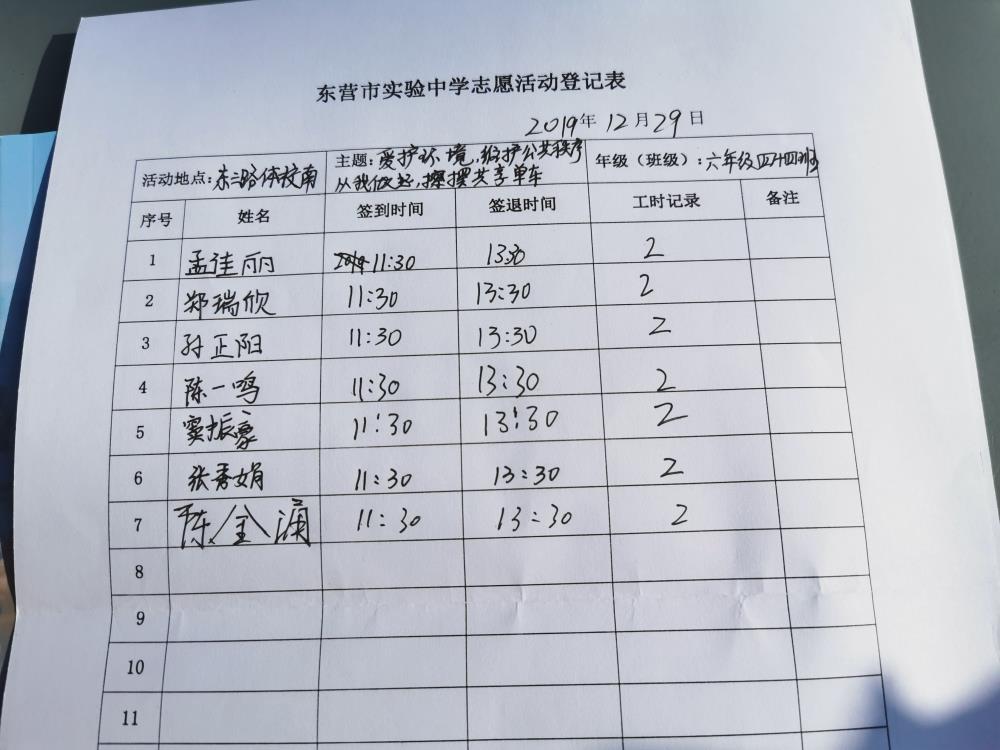 东营市实验中学志愿活动登记表
2019年12月29日
活动地点:东三路体校南 主题:爱护环境,维护公共秩序 年级(班级):六年级四十四班
从我做起,摆摆共享单车
序号 姓名 签到时间 签退时间 工时记录 备注
1 孟佳丽 11:30 13:30 2
2 郑瑞欣 11:30 13:30 2
3 孙正阳 11:30 13:30 2
4 陈一鸣 11:30 13:30 2
5 窦振豪 11:30 13:30 2
6 张秀娟 11:30 13:30 2
7 陈金澜 11:30 13:30 2
8
9
10
11